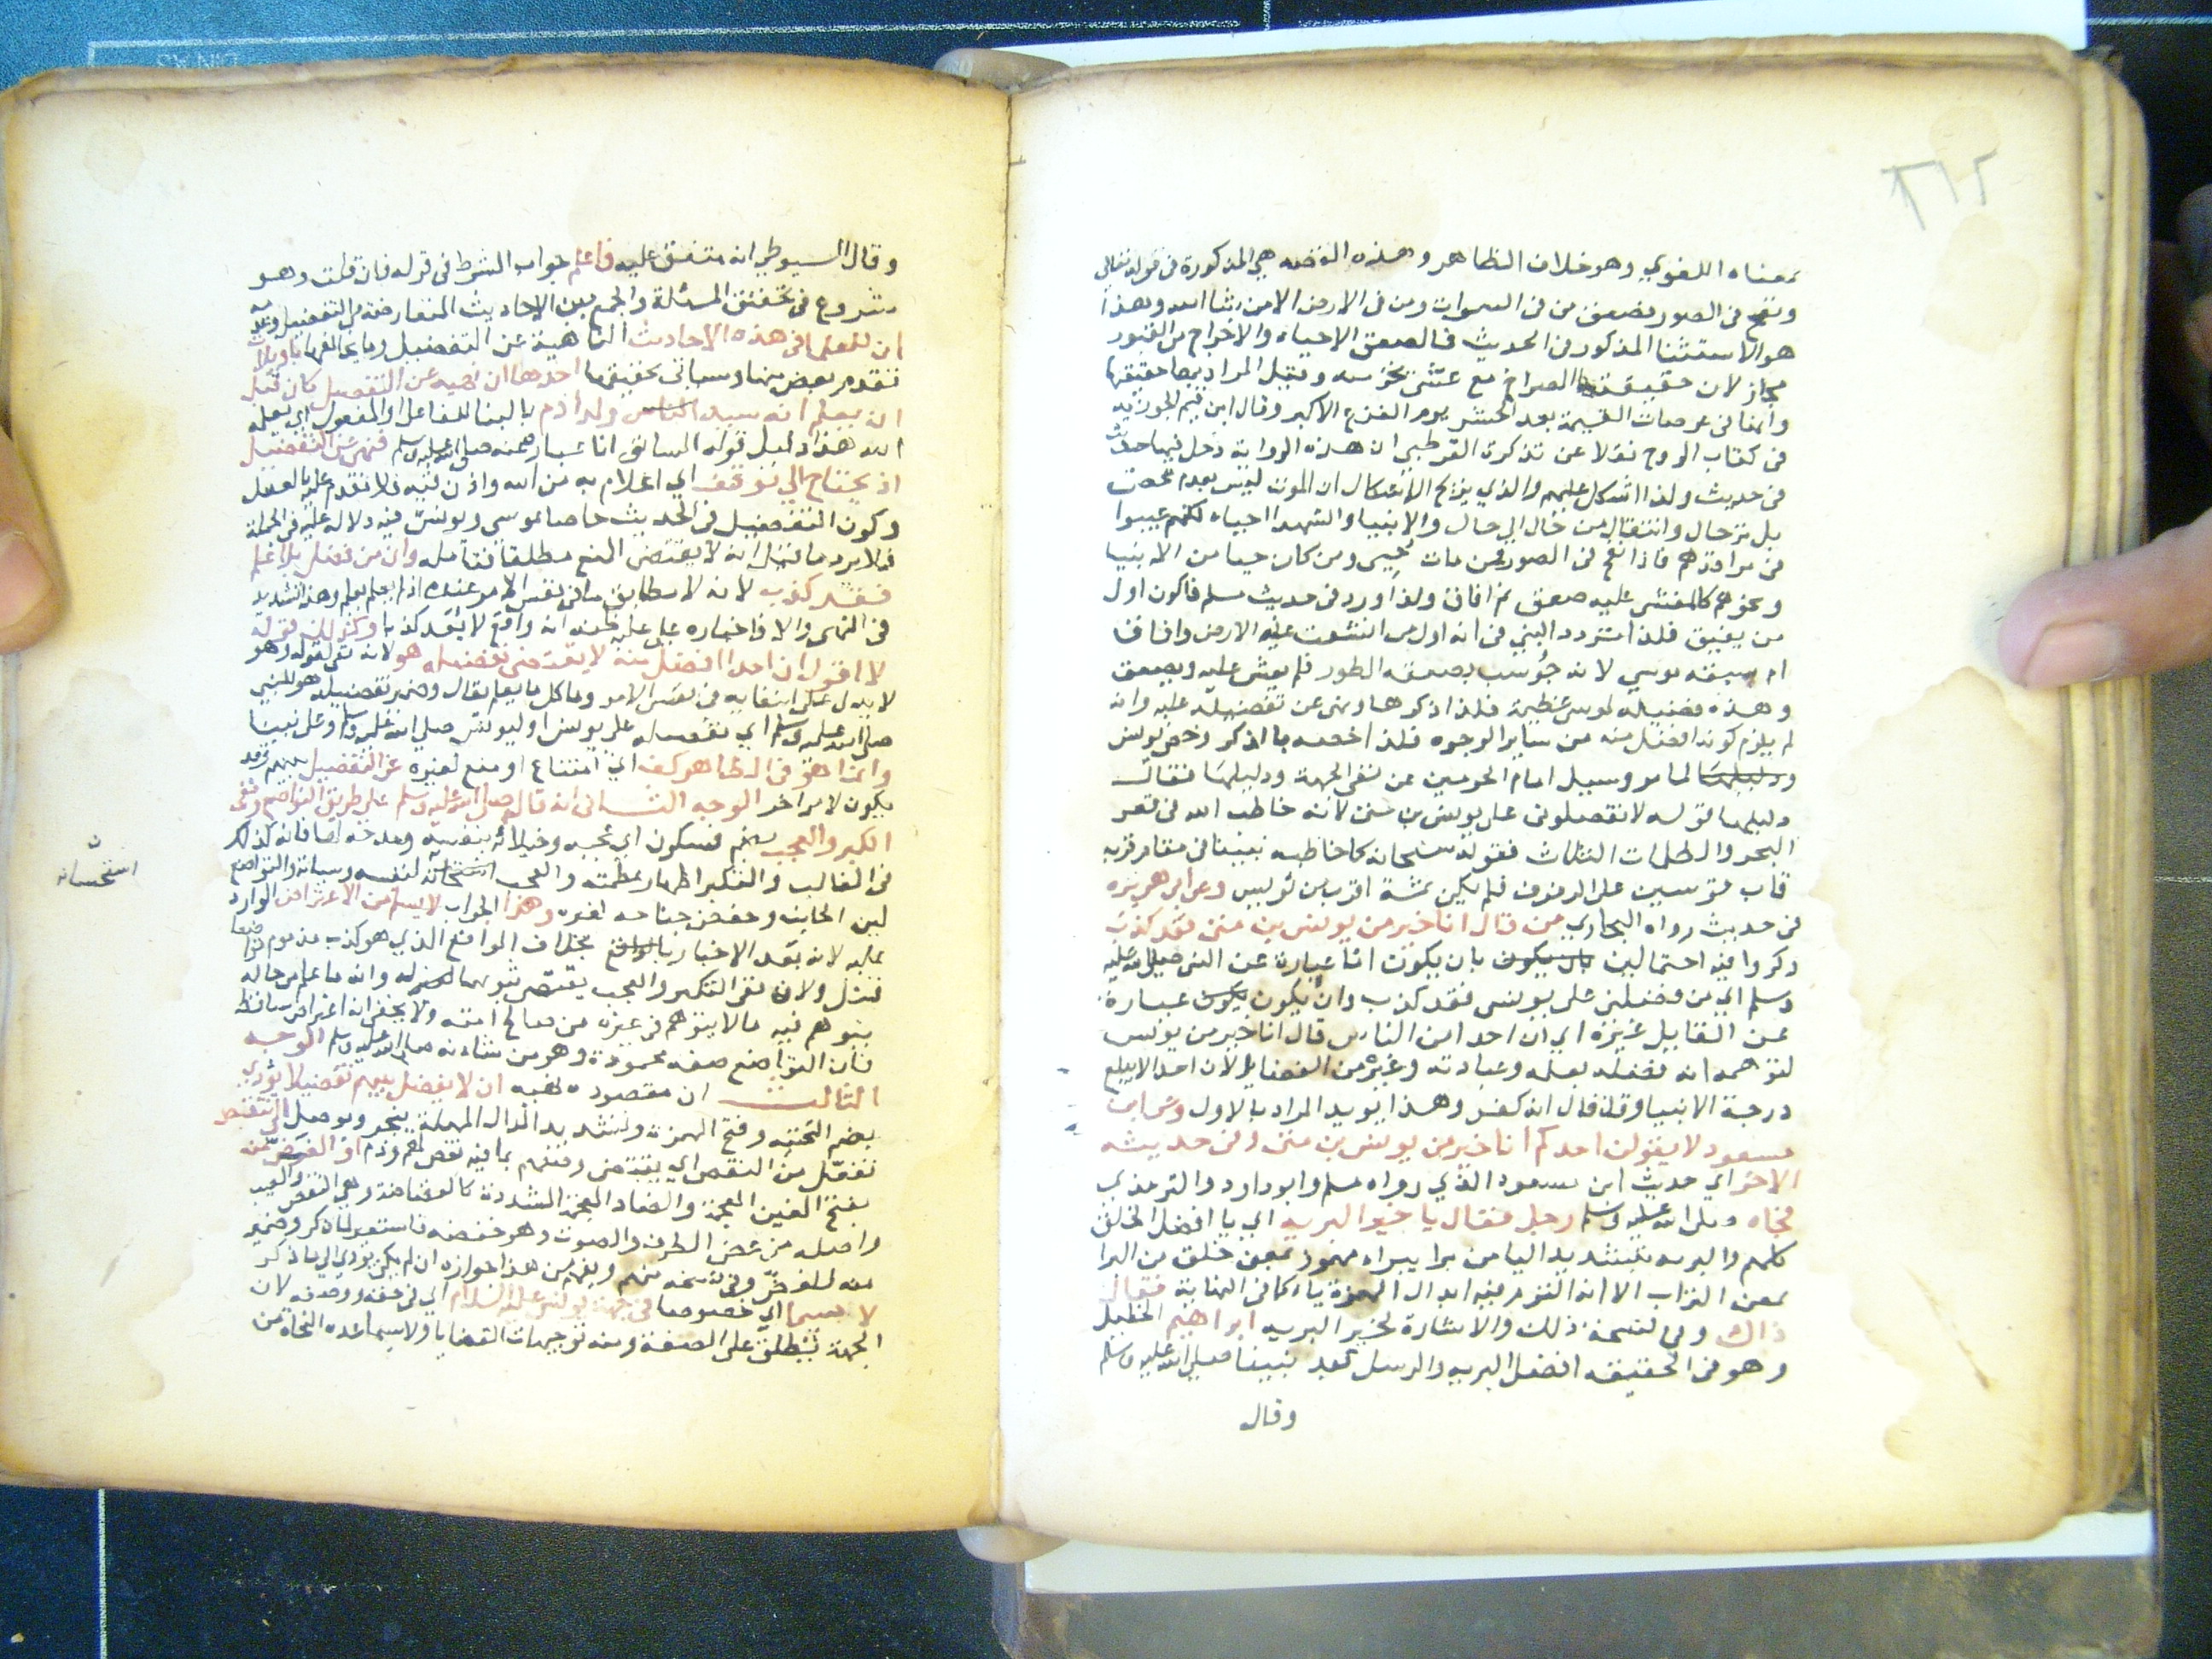 ٢١٢
بمعناه اللغوي وهو خلاف الظاهر وهذه القصه هي المذكورة في قوله تعالي
ونفخ في الصور فصعق من في السموات ومن في الارض الا من شا الله وهذا
هو الاستثنا المذكور في الحديث فالصعق الاحياء والاخراج من القبور
مجاز لان حقيقته الصراخ مع غشي نحوسه وقيل المراد بها حقيقتها
وانها في عرصات القيمة بعد الحشر يوم الفزع الاكبر وقال ابن قيم الجوزيه
في كتاب الروح نقلا عن تذكرة القرطبي ان هذه الرواية دخل فيها حديث
في حديث ولذا اشكل عليهم والذي يزيح الاشكال ان الموت ليس بعدم محض
بل ترحال وانتقال من حال الي حال والانبيا والشهدا احياء لكنهم غيبوا
في مراقدهم فاذا نفخ في الصور فمن مات يحيى ومن كان حيا من الانبيا
ونحوهم كالمغشي عليه صعق ثم افاق ولذا ورد في حديث مسلم فاكون اول
من يفيق فلذا تردد النبي في انه اول من انشقت عنه الارض وافاق
ام سبقه موسي لانه حوسب بصعقه الطور فلم يغش عليه ويصعق
وهذه فضيلة لموسي عظيمة فلذا ذكرها ونهى عن تفضيله عليه وانه
لم يلزم كونه افضل منه من ساير الوجوه فلذا خصه بالذكر وخص يونس
ودليلها لما مر وسيل امام الحرمين عن نفي الجهة ودليلها فقال
دليلها قوله لا تفضلوني على يونس بن متى لانه خاطب الله في قعر
البحر والظلمات الثلاث فقوله سبحانك كما خاطبه نبينا في مقام قربه
قاب قوسين على الرفرف فلم يكن ثمة اقرب من يونس وعن ابي هريرة
في حديث رواه البخاري من قال انا خير من يونس بن متى فقد كذب
ذكروا فيه احتمالين بان يكون بان يكون انا عبارة عن النبي صلي الله عليه
وسلم اي من فضلني على يونس فقد كذب وان يكون يكون عبارة
عن القايل غيره اي ان احد من الناس قال انا خير من يونس
لتوهمه انه فضله بعلمه وعبادته وغيره من الفضايل لان احدا لا يبلغ
درجة الانبيا وقد قال انه كفر وهذا يويد المراد بالاول وعن ابن
مسعود لا يقولن احدكم انا خير من يونس بن متى وفي حديثه
الاخر اي حديث ابن مسعود الذي رواه مسلم وابو داود والترمذي
فجاه صلى الله عليه وسلم رجل فقال يا خير البريه اي يا افضل الخلق
كلهم والبريه بتشديد اليا من برا يبراء مهموز بمعنى خلق من البرا
بمعنى التراب الا انه التزم فيه ابدال الهمزة ياء كما في النهاية فقال
ذاك وفي نسخة ذلك والاشارة لخير البريه ابراهيم الخليل
وهو في الحقيقه افضل البريه والرسل بعد نبينا صلي الله عليه وسلم
وقال
وقال السيوطي انه متفق عليه فاعلم جواب الشرط في قوله فان قلت وهو
شروع في تحقيق المسئلة والجمع بين الاحاديث المتعارضة في التفضيل وعدمه
ان للعلما في هذه الاحاديث الناهية عن التفضيل وما يخالفها تاويلات
تقدم بعض منها وسياتي تحقيقها احدها ان نهيه عن التفضيل كان قبل
ان يعلم انه سيد الناس ولد ادم بالبنا للفاعل او المفعول اي يعلمه
الله هذا دليل قوله السابق انا عبارة عنه صلى الله عليه وسلم فنهى عن التفضيل
اذ يحتاج الي توقيف اي اعلام به من الله واذن فيه فلا تقدم عليه بالعقل
وكون التفضيل في الحديث خاصا بموسى ويونس فيه دلالة عليه في الجملة
فلا يرد ما قيل انه لا يقتضي المنع مطلقا فتامله وان من فضل بلا علم
فقد كذب لانه لا يطابق ما في نفس الامر عنده اذ لم يعلم بعلم وهذا تشديد
في النهي والا فاخباره على علم عنده انه واقع لا يعد كذبا وكذلك قوله
لا اقول ان احدا افضل منه لا يقتضي تفضيله هو لانه نفي لقوله وهو
لا يدل على انتفايه في نفس الامر وما كل ما يعلم يقال وضمير تفضيله هو للنبي
صلى الله عليه وسلم اي تفضيله على يونس او ليونس صلى الله عليه وسلم وعلى نبينا
وانما هو في الظاهر كف اي امتناع او منع لغيره عن التفضيل بينهم وقد
يكون لامر اخر الوجه الثاني انه قاله صلى الله عليه وسلم على طريق التواضع ونفي
الكبر والعجب بضم فسكون اي عجبه وخيلائه بنفسه ومدحه اصافاته كذلك
في الغالب والتكبر اظهار عظمته والعجب استحسانه لنفسه وسياته والتواضع
لين الجانب وخفض جناحه لغيره وهذا الجواب لا يسلم من الاعتراض الوارد
عليه لانه بعد الاخبار بالواقع بخلاف الواقع الذي هو كذب مذموم
قيل ولان نفي التكبر والعجب يقتضي ثبوتهما لمنزله وانه ما علم من حاله
يتوهم فيه ما لا يتوهم في غيره من صالح امته ولا يخفى انه اعتراض ساقط
فان التواضع صفه محمودة وهو من شانه صلى الله عليه وسلم الوجه
الثالث ان مقصوده نهيه ان لا يفضل بينهم تفضيلا يؤدي
بضم التحتيه وفتح الهمزة وتشديد الدال المهملة ينجر ويوصل الى تنقص
تفعّل من النقص اي يقتضي وقتلهم بما فيه نقص لهم وذم او الغض منه
بفتح الغين المعجمة والضاد المعجمة المشددة كالغضاضة وهي النقص والعيب
واصله من غض الطرف والصوت وهو خفضه فاستعير لما ذكر وضمير
منه للمفضل وفي نسخه منهم ويفهم من هذا جوازه ان لم يكن يؤدي الي ما ذكر
لا سيما اي خصوصا في جهة يونس عليه السلام اي في حقه ووصفه لان
الجهة تطلق على الصفة ومنه توجيهات القضايا ولا سيما عده النحاة من
ن
استحسانه